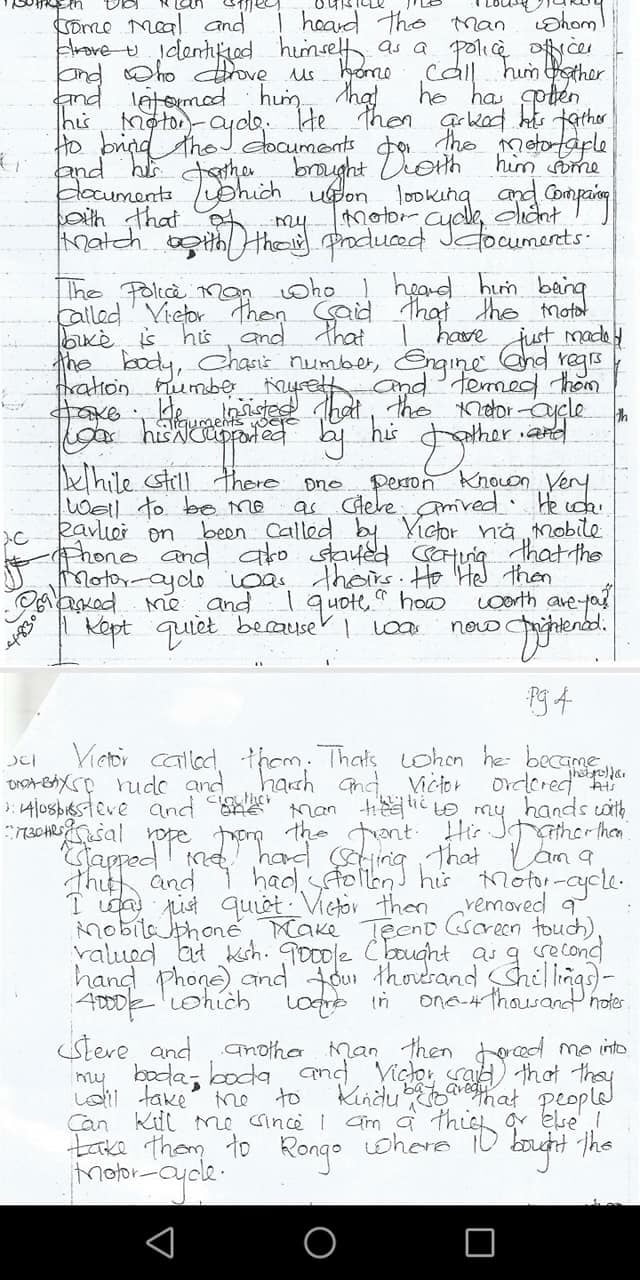 some meal and I heard the man whom
drove u identified himself as a police officer
and who drove us home call him father
and informed him that he has gotten
his Motor-cycle. He then asked his father
to bring the documents for the Motorcycle
and his father brought with him some
documents which upon looking and Comparing
with that of my Motor-cycle, didnt
Match with their produced documents.
The Police Man who I heard him being
called Victor then said that the Motor
bike is his and that I have just made
the body, Chasis number, Engine and regis
tration number myself and termed them
fake. He insisted that the Motor-cycle
arguments were
was his supported by his father. and
While still there one person known very
well to be me as Steve arrived. He was
earlier on been called by Victor via Mobile
Phone and also started saying that the
Motor-cycle was theirs. He then
asked me and I quote, "how worth are you?"
I kept quiet because I was now frightened.
Pg 4
Victor called them. Thats when he became
so rude and harsh and Victor ordered his
another
Steve and one man tied to my hands with
1730HRS sisal rope from the front. His Father then
slapped me hard saying that I am a
thief and I had stolen his Motor-cycle.
I was just quiet. Victor then removed a
Mobile phone Make Tecno (screen touch)
valued at Ksh. 9000/= (bought as a second
hand phone) and four thousand (shillings)-
4000/= which were in one-4thousand notes
Steve and another Man then forced me into
my boda-boda and Victor said that they
bay area
will take me to Kindu so that people
can kill me since I am a thief or else I
take them to Rongo where I bought the
Motor-cycle.